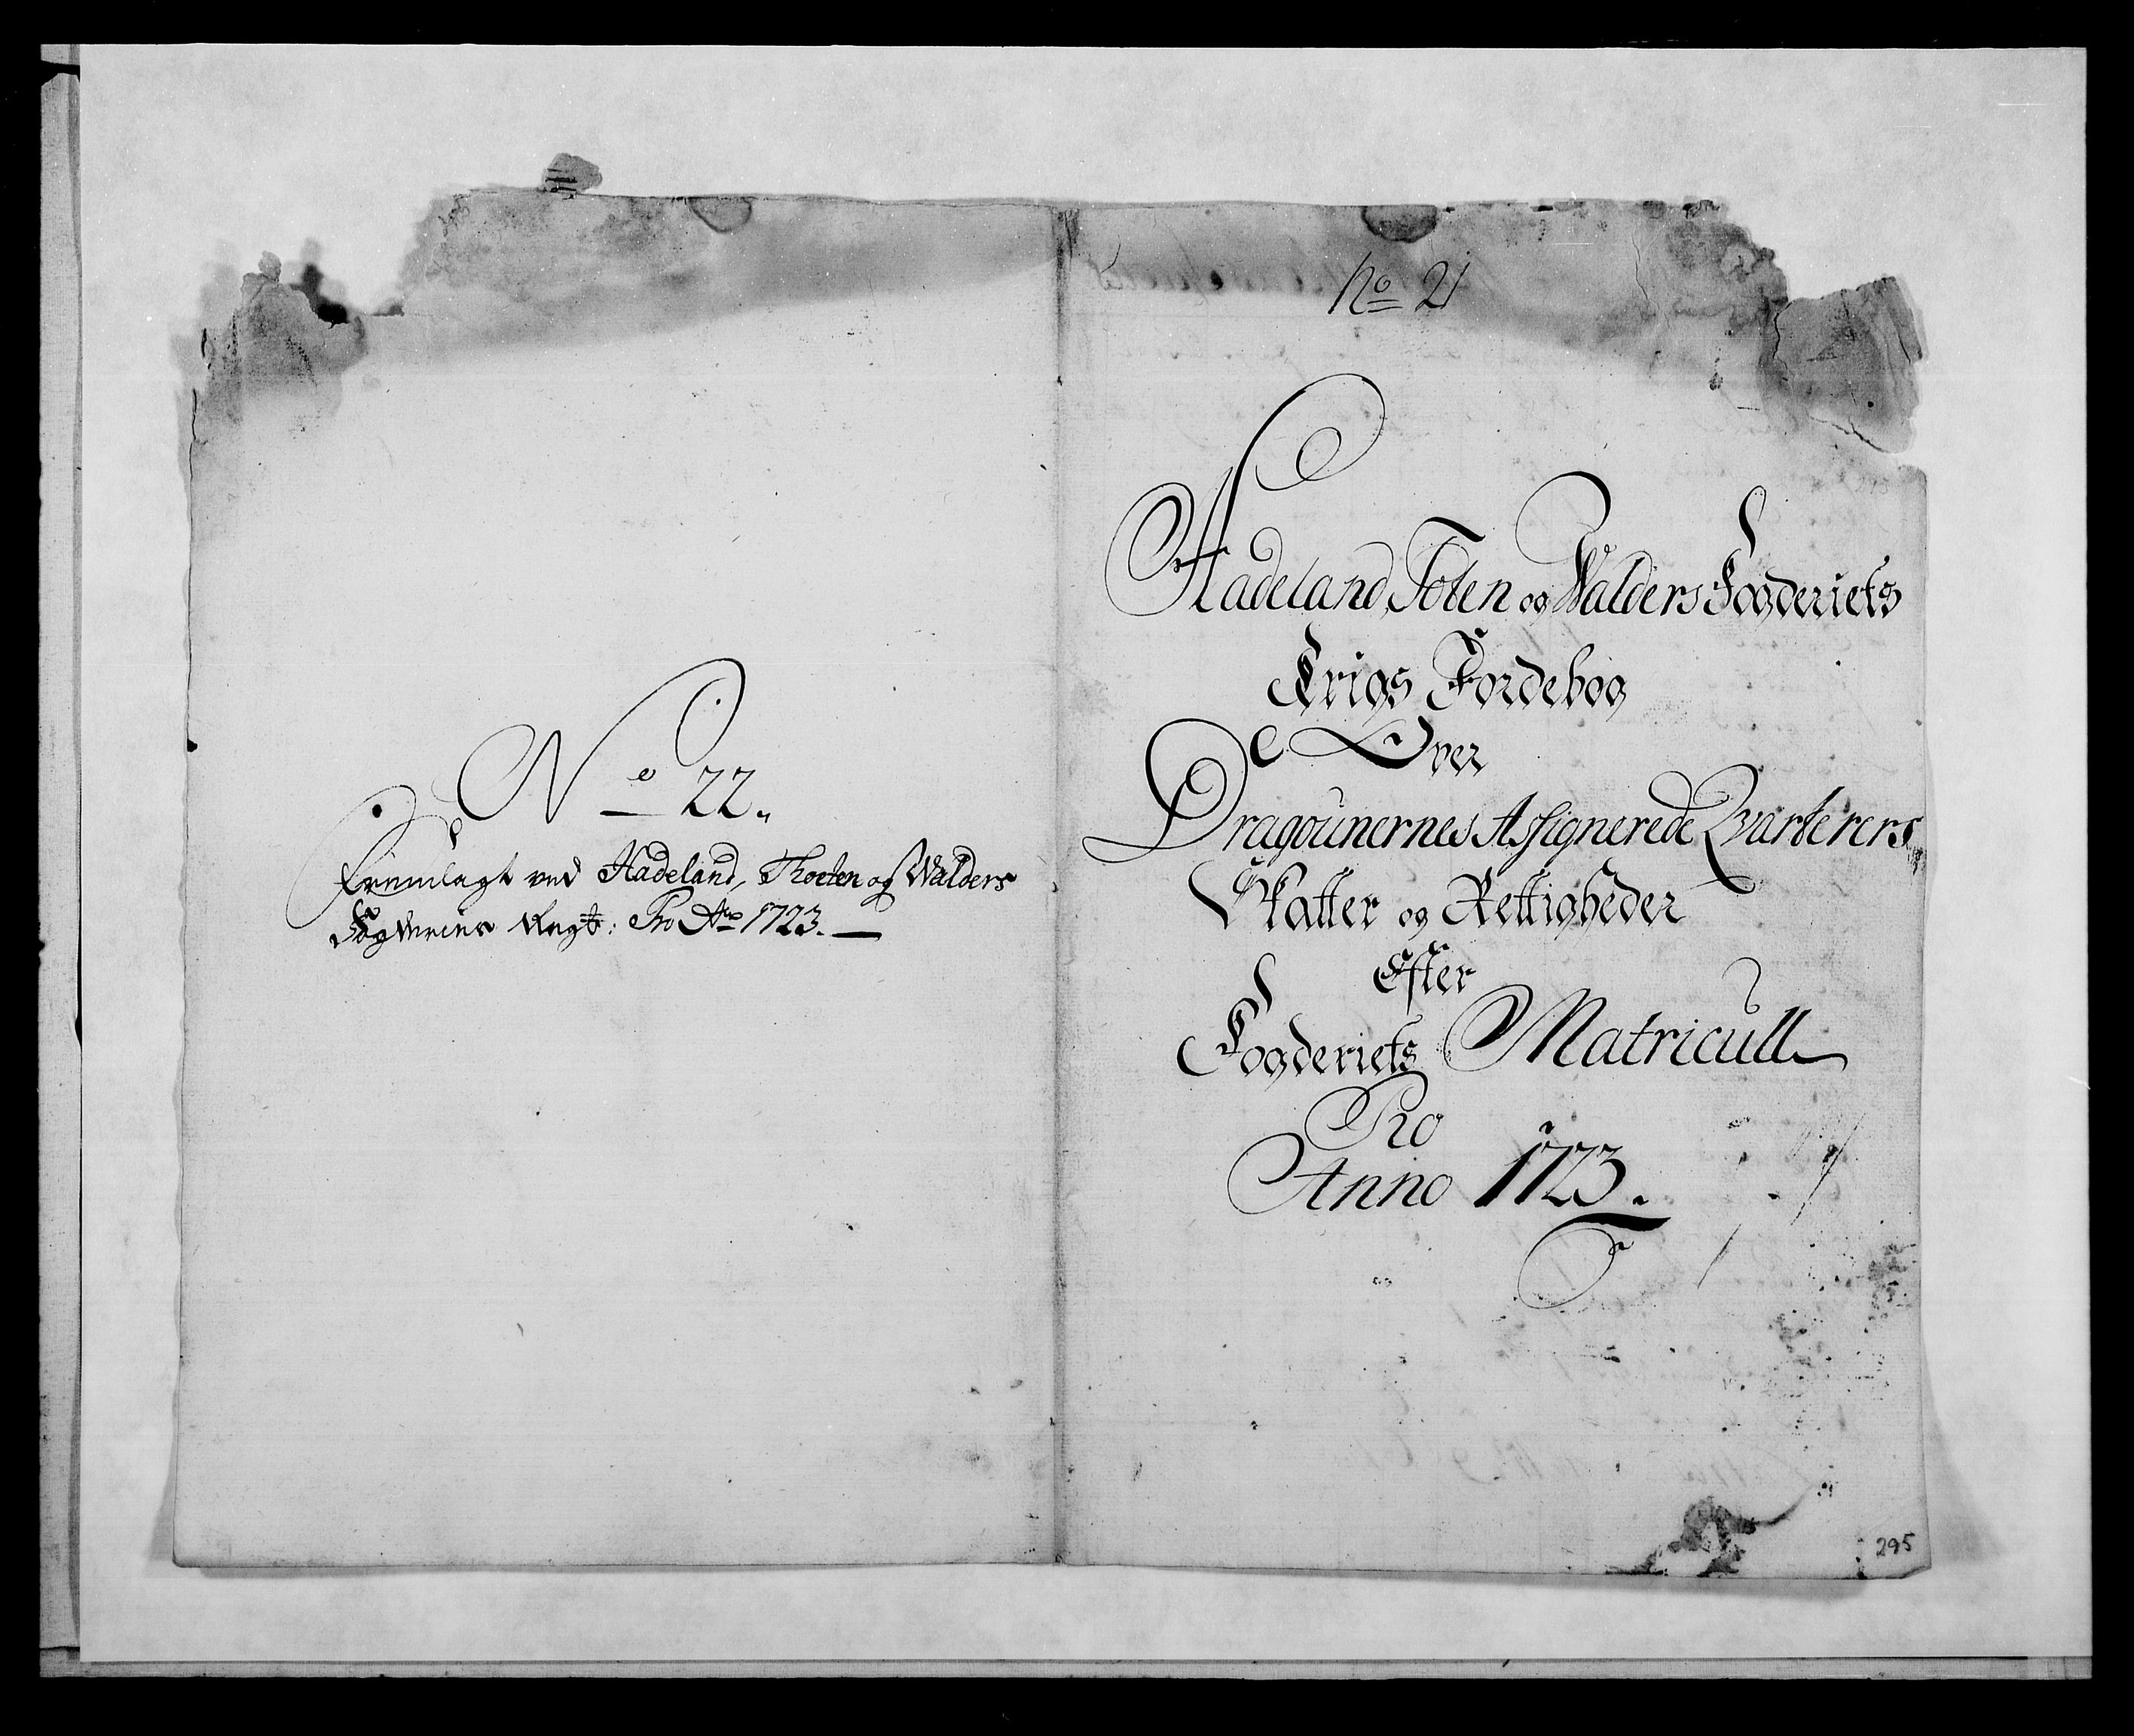 No 22.
Fremlagt ved Hadeland, Thoeten og Walders
Fogderies Regt: Pro Ao 1723.
No 21
Hadeland, Toten og Walders Fogderiets
Krigs Jordebog
Over
Dragounernes Assignerede Qvarterers
Skatter og Rettigheder
Efter
Fogderiets Matricull
Pro
Anno 1723.
295